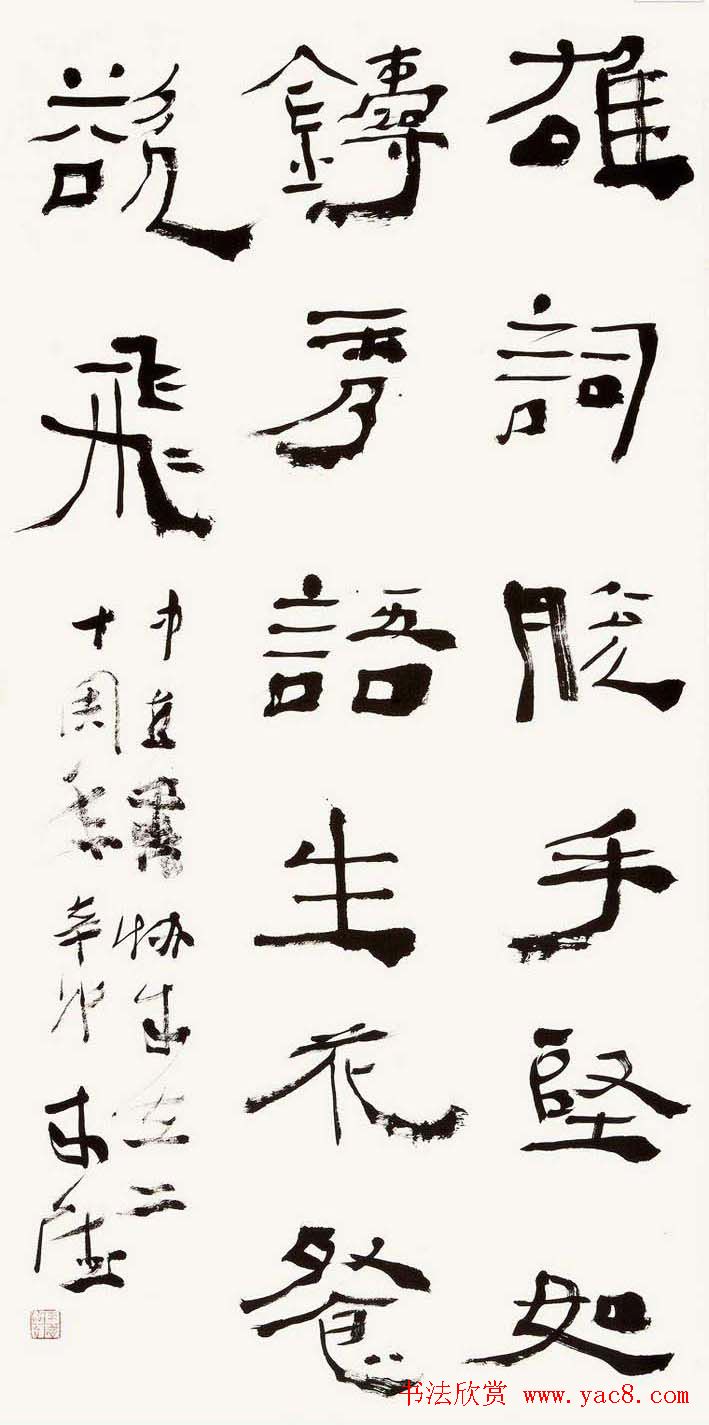 雄詞脫手堅如
鑄秀語生花餐
欲飛
中直書協成立二
十周年 辛卯
书法欣赏 www.yac8.com